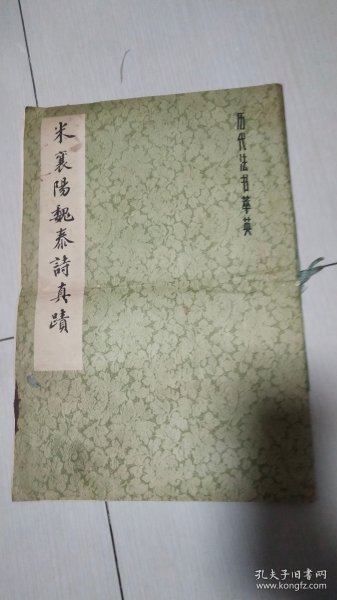 历代法书萃英
米襄陽魏泰詩真蹟
孔夫子旧书网
book.kongfz.com